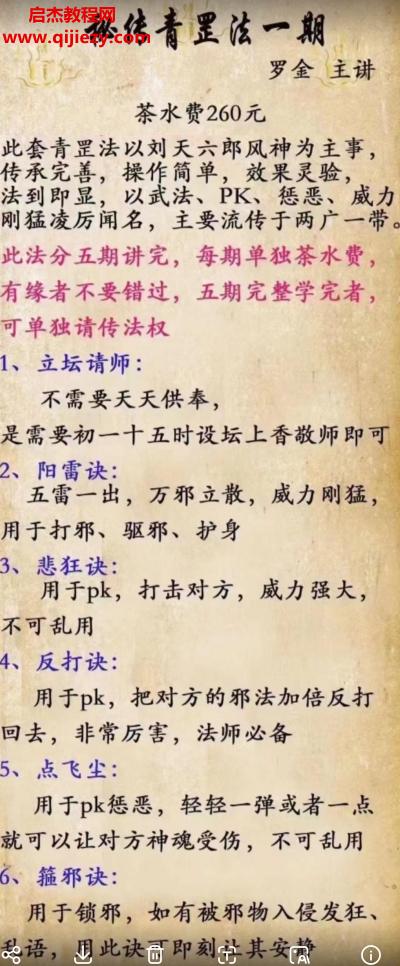 启杰教程网
www.qijiezy.com
秘传青罡法一期
罗金 主讲
茶水费260元
此套青罡法以刘天六郎风神为主事，
传承完善，操作简单，效果灵验，
法到即显，以武法、PK、惩恶、威力
刚猛凌厉闻名，主要流传于两广一带。
此法分五期讲完，每期单独茶水费，
有缘者不要错过，五期完整学完者，
可单独请传法权
1、立坛请师：
不需要天天供奉，
是需要初一十五时设坛上香敬师即可
2、阳雷诀：
五雷一出，万邪立散，威力刚猛，
用于打邪、驱邪、护身
3、悲狂诀：
用于pk，打击对方，威力强大，
不可乱用
4、反打诀：
用于pk，把对方的邪法加倍反打
回去，非常厉害，法师必备
5、点飞尘：
用于pk惩恶，轻轻一弹或者一点
就可以让对方神魂受伤，不可乱用
6、箍邪诀：
用于锁邪，如有被邪物入侵发狂、
乱语，用此诀可即刻让其安静